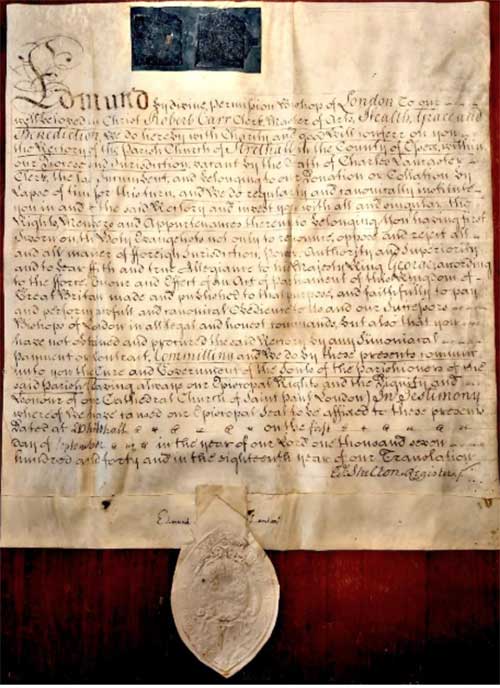 Edmund by divine permission Bishop of London To our
wellbeloved in Christ Robert Carr Clerk, Master of Arts, Health, Grace and
Benediction, We do hereby with Charity and good will conferr on you
the Rectory of the Parish Church of Strethall in the County of Essex, within
our Diocese and Jurisdiction, vacant by the Death of Charles Lancaster
Clerk, the last Incumbent, and belonging to our Donation or Collation by
Lapse of time for this turn, and We do regularly and canonically institute
you in and to the said Rectory and invest you with all and singular the
Rights, Members and Appurtenances thereunto belonging, You having first
Sworn on the Holy Evangelists not only to renounce, oppose and reject all
and all manner of fforeign Jurisdiction, Power, Authority and Superiority
and to bear ffaith and true Allegiance to his Majesty King George according
to the fforce, and Effect of an Act of parliament of this Kingdom of
Great Britain made and published to that purpose, and faithfully to pay
and perform all and canonical Obedience to Us and our Successors
Bishops of London in all legal and honest commands, but also that you
have not obtained and procured the said Rectory by any Simoniacal
payment or contract, Committing and We do by these presents commit
unto you the Cure and Government of the Souls of the Parishioners of the
said Parish (Saving always our Episcopal Rights and the Dignity and
Honour of our Cathedral Church of Saint Paul London) In Testimony
whereof We have caused our Episcopal Seal to be affixed to these presents
Dated at Whitehall on the first
day of September in the year of our Lord one thousand seven
hundred and forty and in the eighteenth year of our Translation
Shelton Register
Edmund London